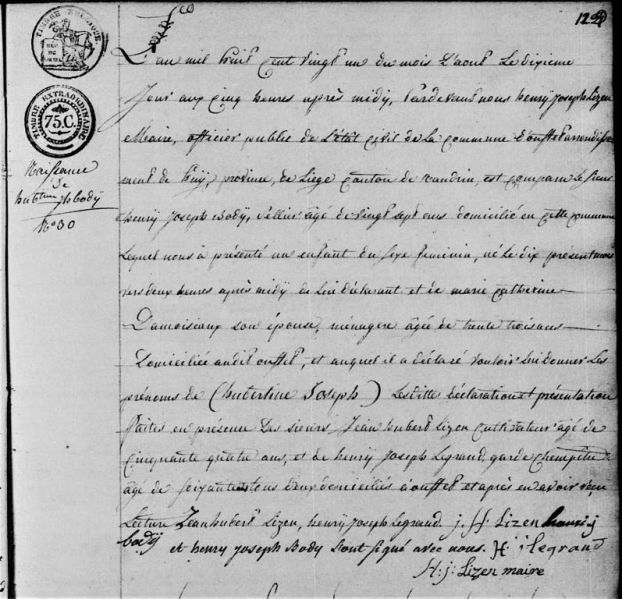 122
TIMBRE
75.C.
TIMBRE EXTRAORDINAIRE
Naissance
de
hubertine jh body
N° 30
L'an mil huit cent vingt un du mois d'aout Le dixieme
Jour aux cinq heures après midy, Pardevant nous henry Joseph Lizen
Maire, officier public de L'état civil de La commune d'ouffet arrondisse-
ment de huy, province de Liége canton de nandrin, est comparu Le sieur
henry Joseph Body, Sellier agé de vingt sept ans domicilié en cette commune
Lequel nous à présenté un enfant du sexe feminin, né Le dix présent mois
vers deux heures après midy de Lui déclarant et de marie catherine
Damoiseaux son épouse, ménagere agée de trente trois ans
Domiciliée audit ouffet, et auquel il a déclaré vouloir Lui donner Les
prénoms de (hubertine Joseph) Lesditte déclaration et présentation
faites en présence des sieurs Jean hubert Lizen cultivateur agé de
cinquante quatre ans, et de henry Joseph Legrand garde champêtre
agé de soixante tous deux domiciliés à ouffet et après en avoir
Lecture Jean hubert Lizen, henry Joseph Legrand. j. H. Lizen henri j
body et henry Joseph Body Sont Signé avec nous. H. j legrand
H: j: Lizen maire